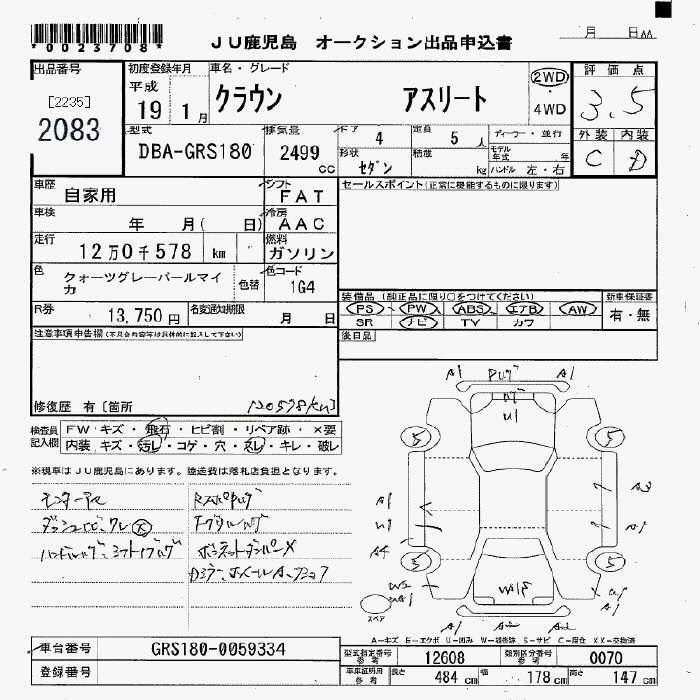 *0023708*
JU鹿児島 オークション出品申込書
月 日AA
出品番号 [2235] 2083
初度登録年月 平成 19 1月
車名・グレード クラウン アスリート
2WD・4WD
評価点 3.5
外装 内装
C D
型式 DBA-GRS180
排気量 2499 cc
ドア 4
定員 5人
形状 セダン
積載 kg
ディーラー・並行
モデル年式 年
ハンドル 左・右
車歴 自家用
シフト FAT
車検 年 月( 日)
冷房 AAC
走行 12万0千578 km
燃料 ガソリン
色 クォーツグレーパールマイカ
色替
色コード 1G4
R券 13,750円
名変通知期限 月 日
セールスポイント(正常に機能するものに限ります)
装備品(純正品に限り○をつけてください)
PS PW ABS エアB AW
SR ナビ TV カワ
新車保証書 有・無
後日品
注意事項申告欄(不具合内容等は具体的に記入して下さい)
修復歴 有[箇所
120578km]
検査員記入欄
FW キズ・飛石・ヒビ割・リペア跡・×要
内装 キズ・汚レ・コゲ・穴・スレ・キレ・破レ
※現車はJU鹿児島にあります。陸送費は落札店負担となります。
A1 A1
U1
5 5
A1
U1
A4
A2
5 5
W2
A1
A1 A2
スペア
A-キズ E-エクボ U-凹み W-補修跡 S-サビ C-腐食 XX-交換済
車台番号 GRS180-0059334
登録番号
型式指定番号 参考 12608
類別区分番号 参考 0070
車庫証明用 参考 長さ 484cm 幅 178cm 高さ 147cm